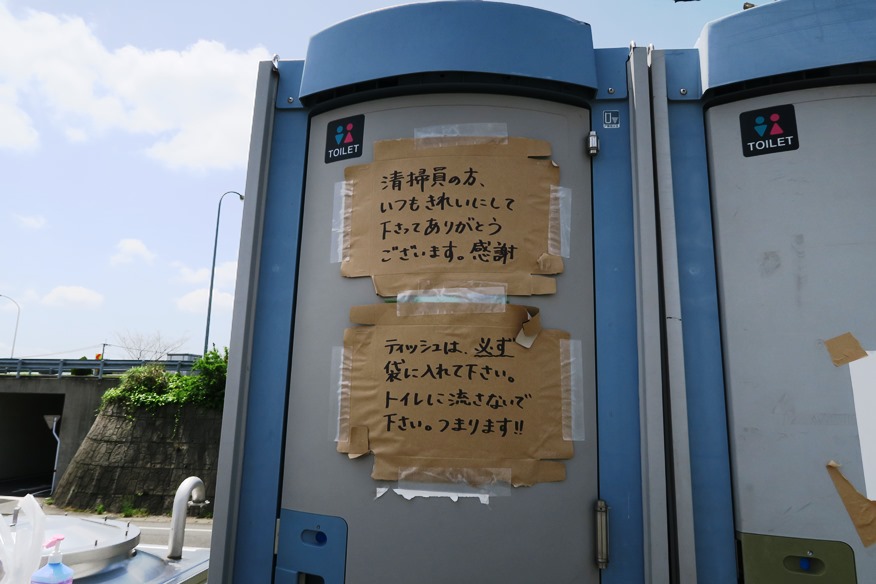 TOILET
清掃員の方、
いつもきれいにして
下さってありがとう
ございます。感謝
ティッシュは、必ず
袋に入れて下さい。
トイレに流さないで
下さい。つまります!!
TOILET